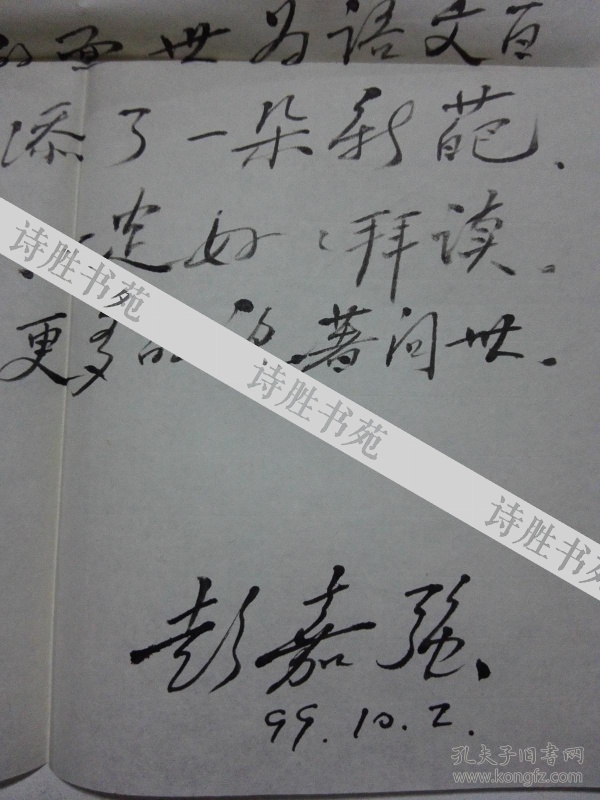 的面世为语文百
添了一朵新葩、
一定好々拜读。
更多的 著问世。
彭嘉强、
99.10.2.
诗胜书苑
诗胜书苑
诗胜书苑
孔夫子旧书网
www.kongfz.com